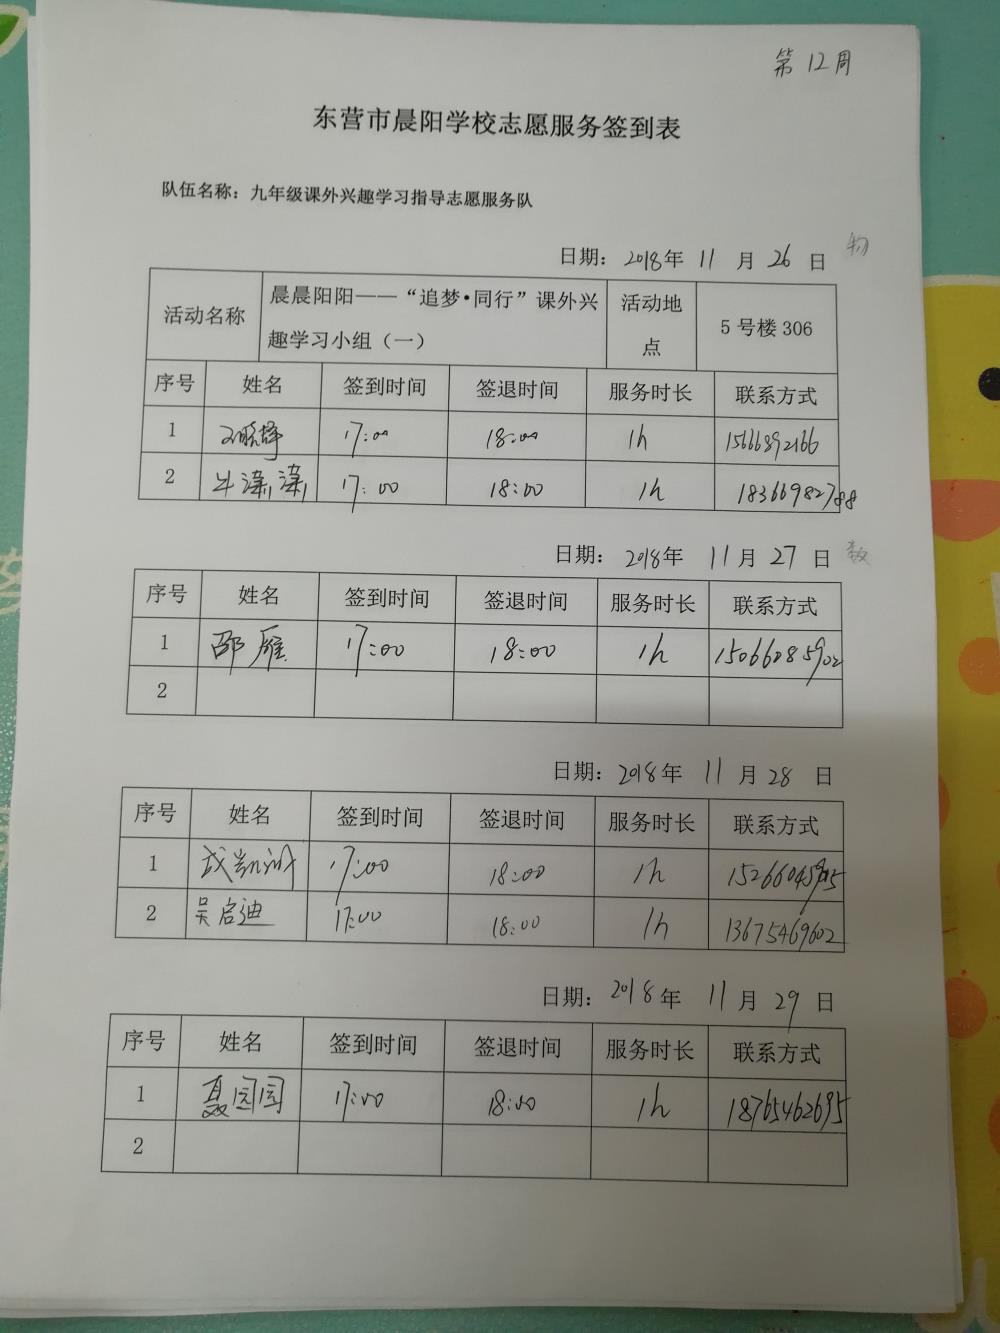 第12周
东营市晨阳学校志愿服务签到表
队伍名称：九年级课外兴趣学习指导志愿服务队
日期： 2018年 11 月 26 日 物
活动名称 晨晨阳阳——“追梦•同行”课外兴 活动地 5 号楼 306
趣学习小组（一） 点
序号 姓名 签到时间 签退时间 服务时长 联系方式
1 17:00 18:00 1h 15666892166
2 牛潇潇 17:00 18:00 1h 18366982788
日期： 2018年 11 月 27 日 数
序号 姓名 签到时间 签退时间 服务时长 联系方式
1 邵雁 17:00 18:00 1h 15066085902
2
日期： 2018年 11 月 28 日
序号 姓名 签到时间 签退时间 服务时长 联系方式
1 17:00 18:00 1h
2 吴启迪 17:00 18:00 1h 13675469602
日期： 2018年 11 月 29 日
序号 姓名 签到时间 签退时间 服务时长 联系方式
1 聂园园 17:00 18:00 1h 18765462695
2